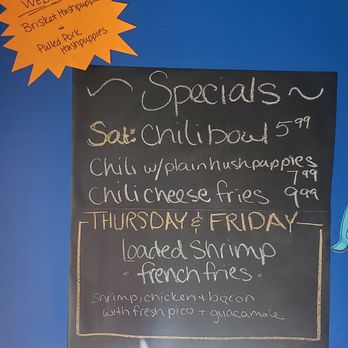 WED
Brisket Hushpuppies
Pulled Pork
Hushpuppies
~ Specials ~
Sat: Chili bowl 5.99
Chili w/plain hushpuppies
7.99
Chili cheese fries 9.99
THURSDAY & FRIDAY
Loaded Shrimp
"french fries"
shrimp, chicken + bacon
with fresh pico + guacamole